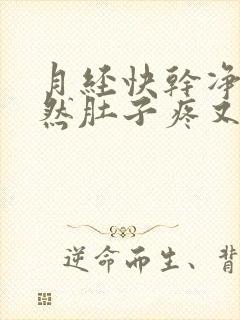 月经快幹净
然肚子疼又
逆命而生、背